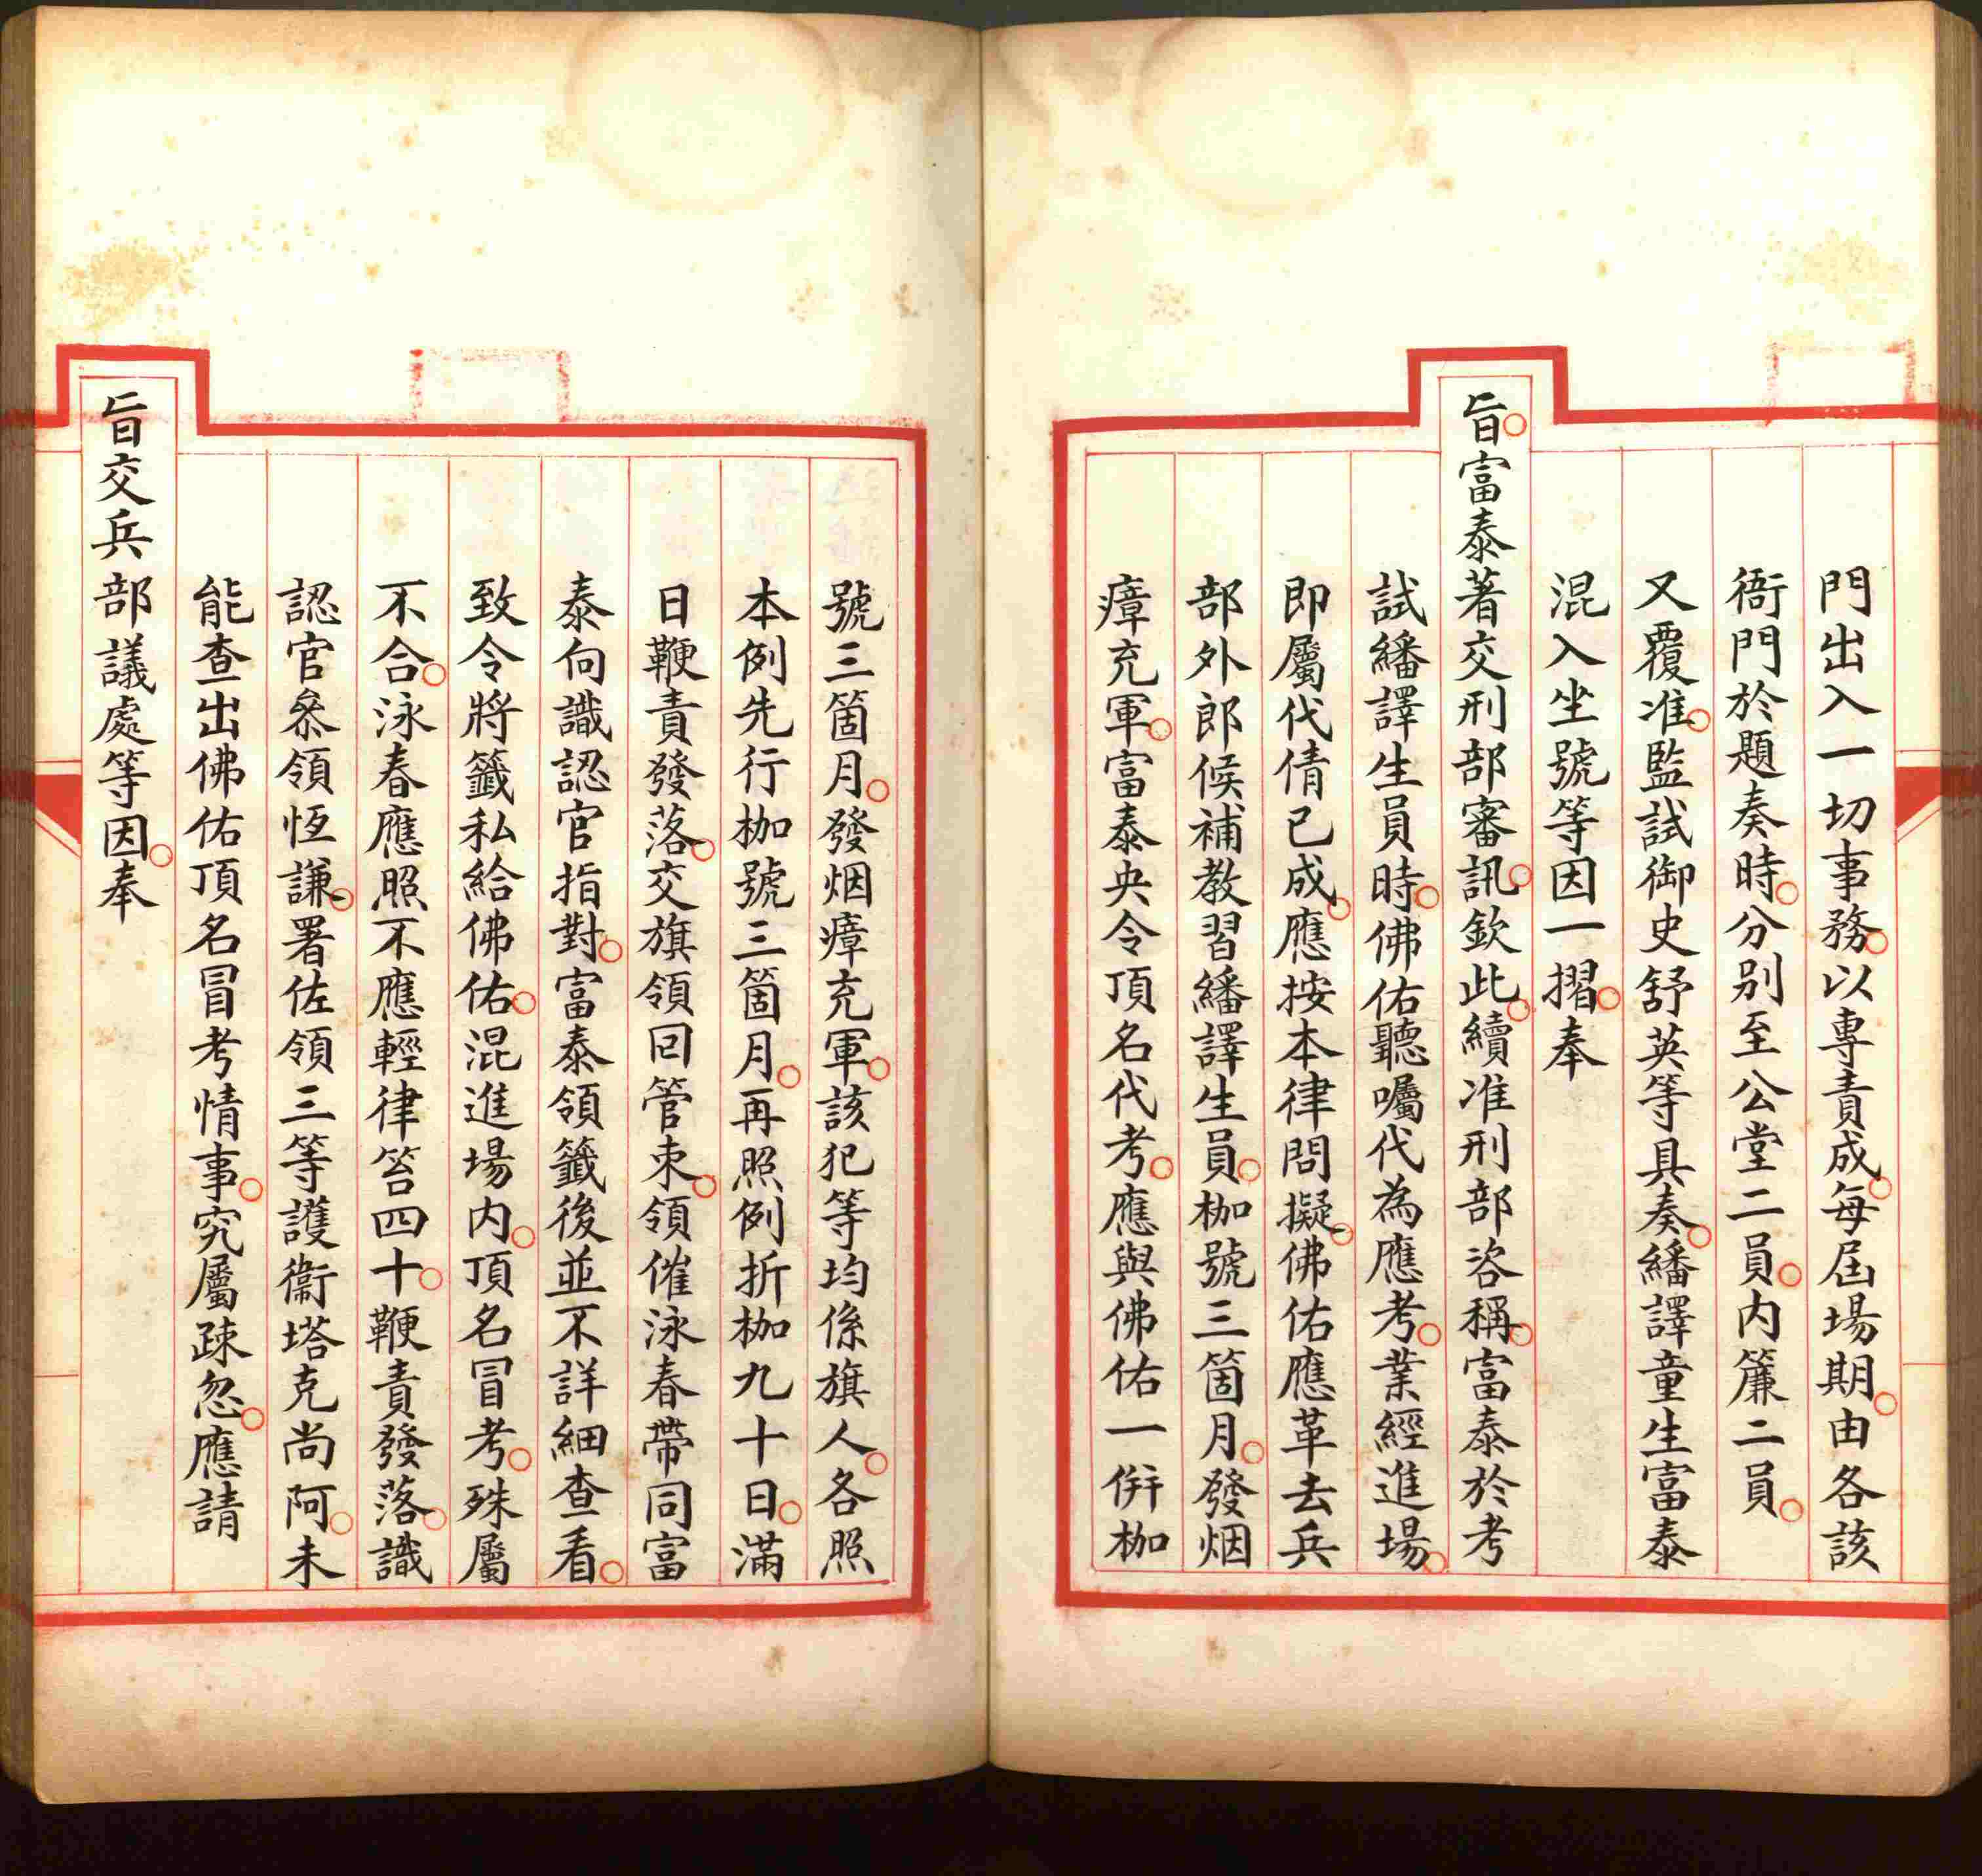 門出入一切事務以專責成每屆場期由各該
衙門於題奏時分別至公堂二員內簾二員
又覆准監試御史舒英等具奏繙譯童生富泰
混入坐號等因一摺奉
旨富泰著交刑部審訊欽此續准刑部咨稱富泰於考
試繙譯生員時佛佑聽囑代為應考業經進場
即屬代倩已成應按本律問擬佛佑應革去兵
部外郎候補教習繙譯生員枷號三箇月發烟
瘴充軍富泰央令頂名代考應與佛佑一倂枷
號三箇月發烟瘴充軍該犯等均係旗人各照
本例先行枷號三箇月再照例折枷九十日滿
日鞭責發落交旗領回管束領催泳春帶同富
泰向識認官指對富泰領籤後並不詳細查看
致令將籤私給佛佑混進場內頂名冒考殊屬
不合泳春應照不應輕律笞四十鞭責發落識
認官叅領恆謙署佐領三等護衞塔克尚阿未
能查出佛佑頂名冒考情事究屬疎忽應請
旨交兵部議處等因奉